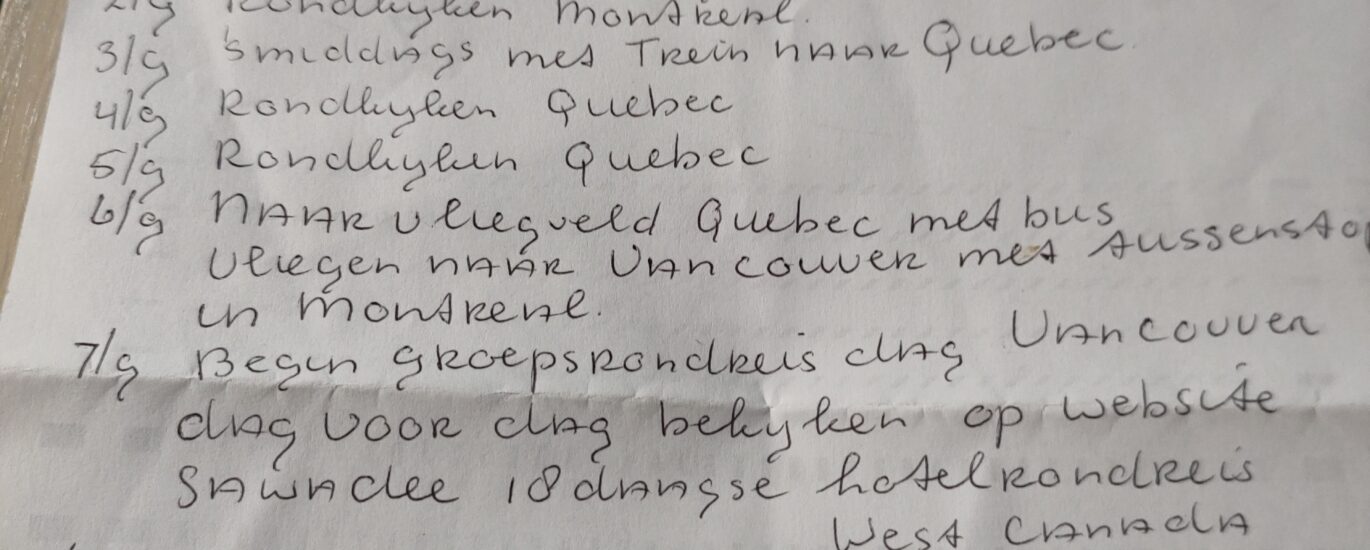 2/9 Rondkyken Montreal.
3/9 'smiddags met Trein naar Quebec.
4/9 Rondkyken Quebec
5/9 Rondkyken Quebec
6/9 Naar vliegveld Quebec met bus
Vliegen naar Vancouver met tussensto
in Montreal.
7/9 Begin groepsrondreis dag Vancouver
dag voor dag bekyken op website
Sawadee 18 daagse hotelrondreis
West Canada